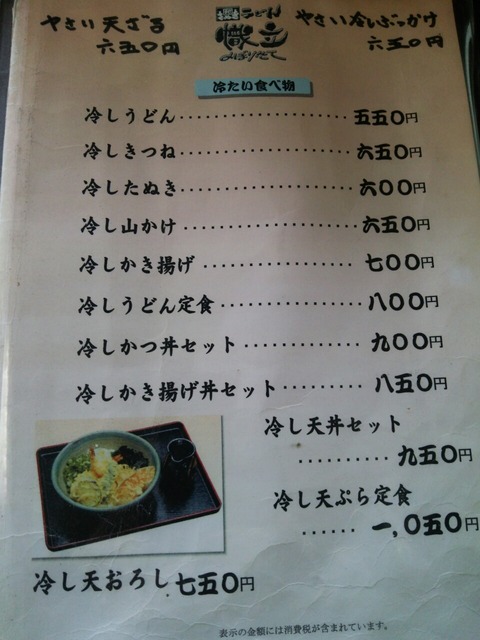 やさい天ざる
六五〇円
うどん
幟立
のぼりたて
やさい冷しぶっかけ
六五〇円
冷たい食べ物
冷しうどん………………… 五五〇円
冷しきつね………………… 六五〇円
冷したぬき………………… 六〇〇円
冷し山かけ………………… 六五〇円
冷しかき揚げ……………… 七〇〇円
冷しうどん定食…………… 八〇〇円
冷しかつ丼セット………… 九〇〇円
冷しかき揚げ丼セット…… 八五〇円
冷し天丼セット
………… 九五〇円
冷し天ぷら定食
…… 一,〇五〇円
冷し天おろし.七五〇円
表示の金額には消費税が含まれています。